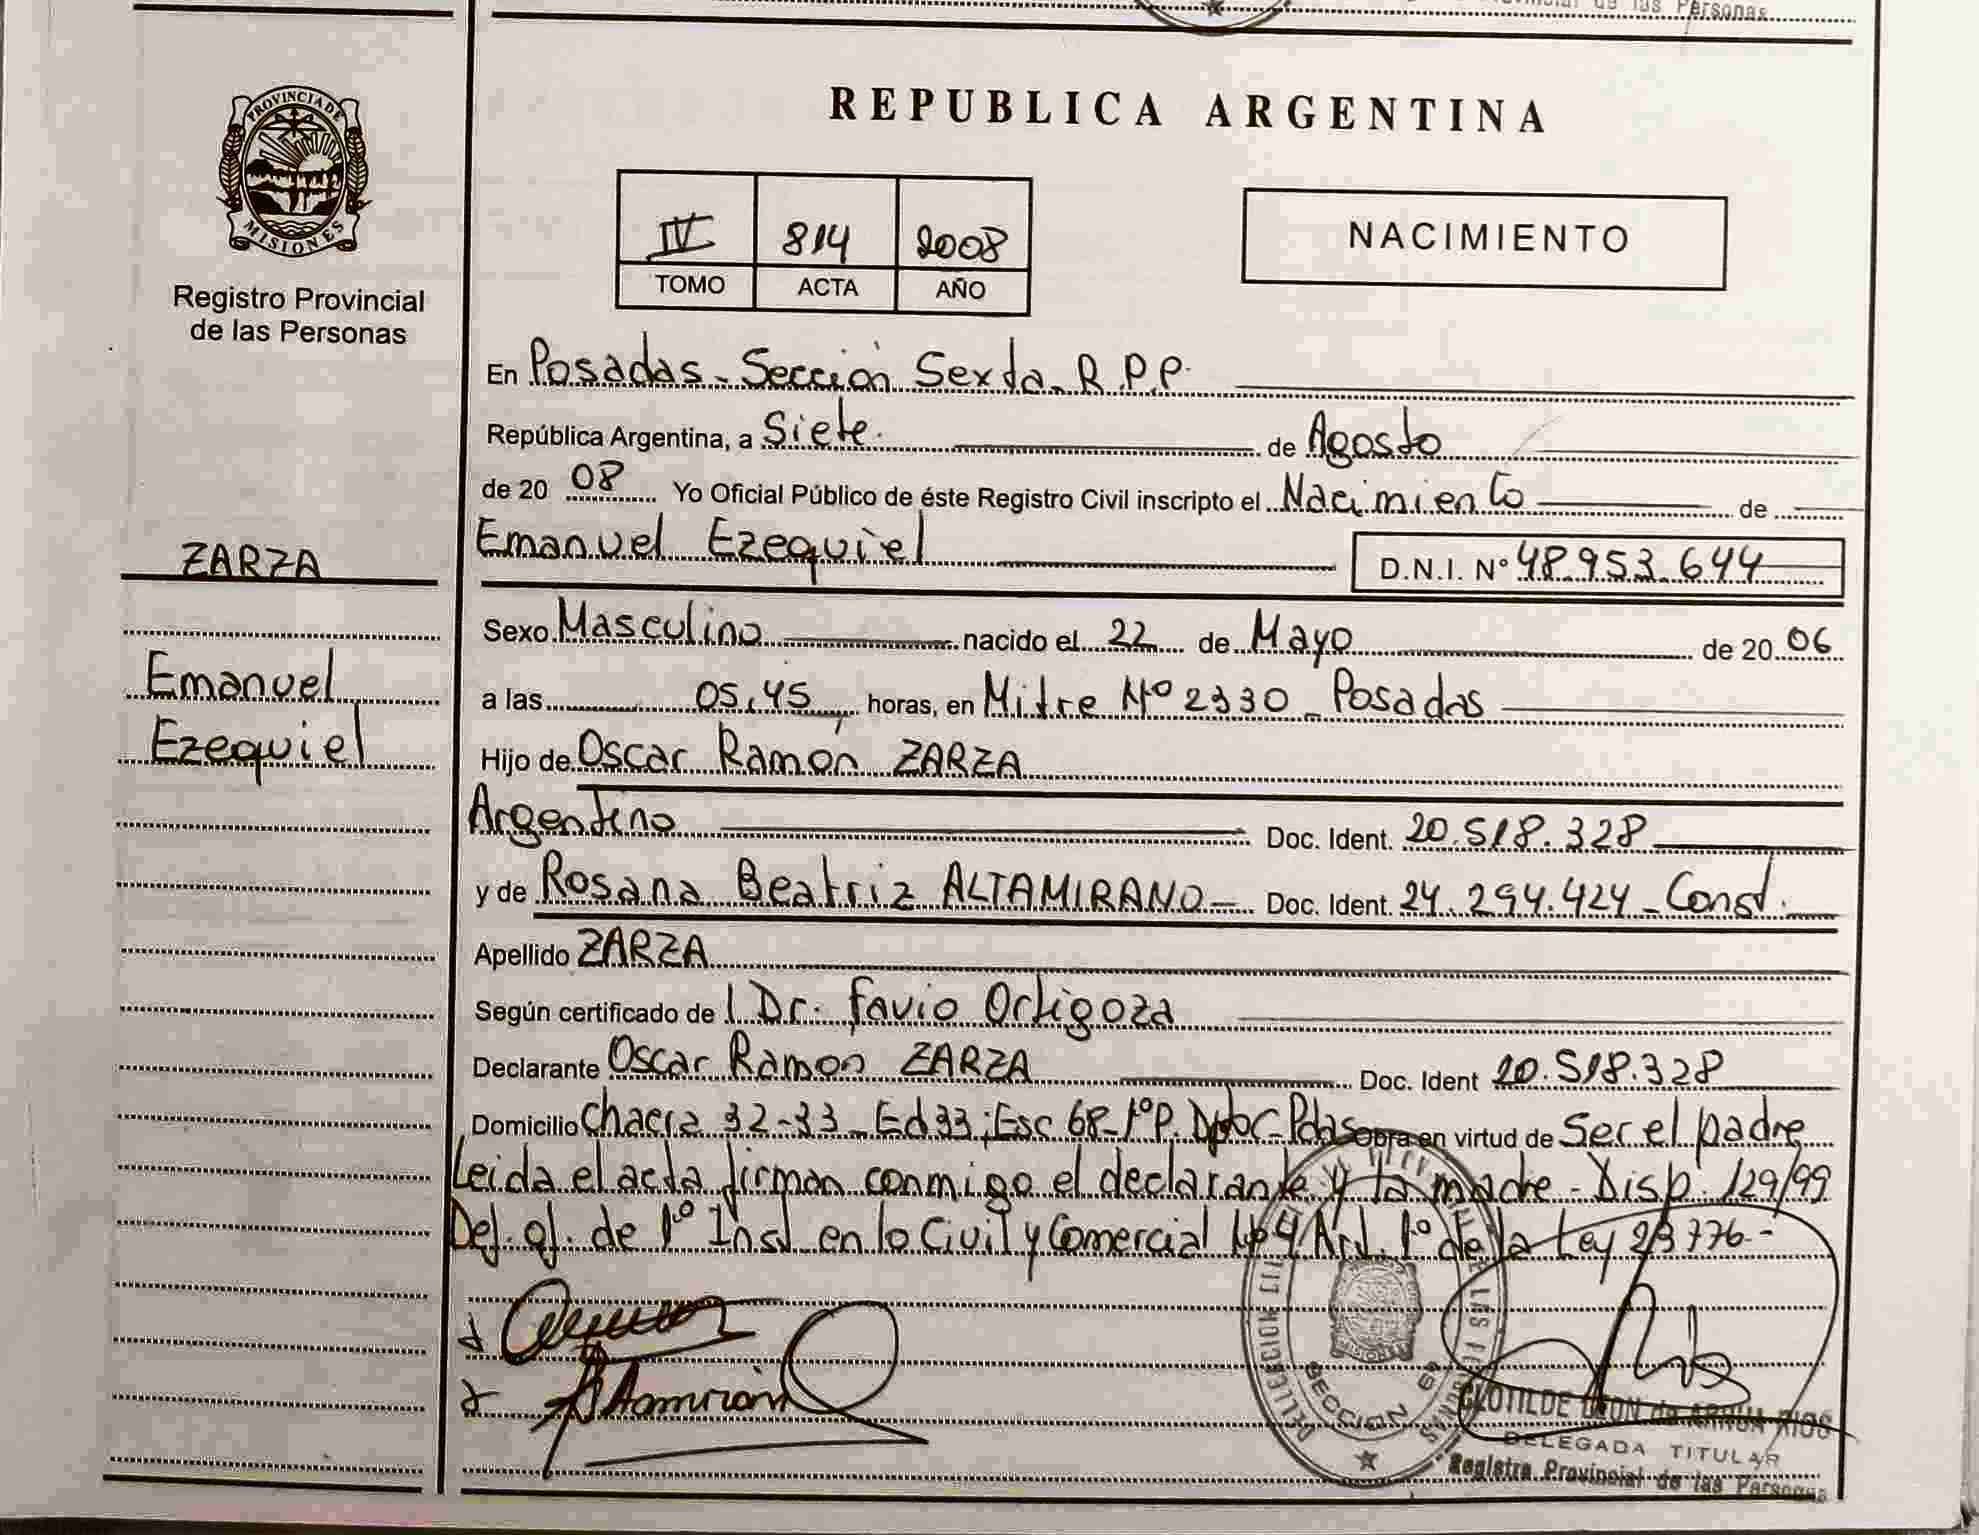 de las Personas
REPUBLICA ARGENTINA
PROVINCIA DE
MISIONES
Registro Provincial
de las Personas
IV 814 2008
TOMO ACTA AÑO
NACIMIENTO
En Posadas - Sección Sexta - R.P.P.
República Argentina, a Siete de Agosto
de 20 08 Yo Oficial Público de éste Registro Civil inscripto el Nacimiento de
Emanuel Ezequiel D.N.I. Nº 48.953.644
ZARZA
Emanuel
Ezequiel
Sexo Masculino nacido el 22 de Mayo de 20 06
a las 05,45 horas, en Mitre Nº 2330 - Posadas
Hijo de Oscar Ramón ZARZA
Argentino Doc. Ident. 20.518.328
y de Rosana Beatriz ALTAMIRANO Doc. Ident. 24.294.424 - Const.
Apellido ZARZA
Según certificado de l Dr. Favio Ortigoza
Declarante Oscar Ramon ZARZA Doc. Ident 20.518.328
Domicilio Chacra 32-33 - Ed 33; Esc 68 - 1º P. Dpto C - Pdas obra en virtud de Ser el padre
Leida el acta firman conmigo el declarante y la madre - Disp. 129/99
Def. of. de 1º Inst. en lo Civil y Comercial Nº 4 Art. 1º de la Ley 23776.-
SECCION 6ª
CLOTILDE de ARRUA RIOS
DELEGADA TITULAR
Registro Provincial de las Personas